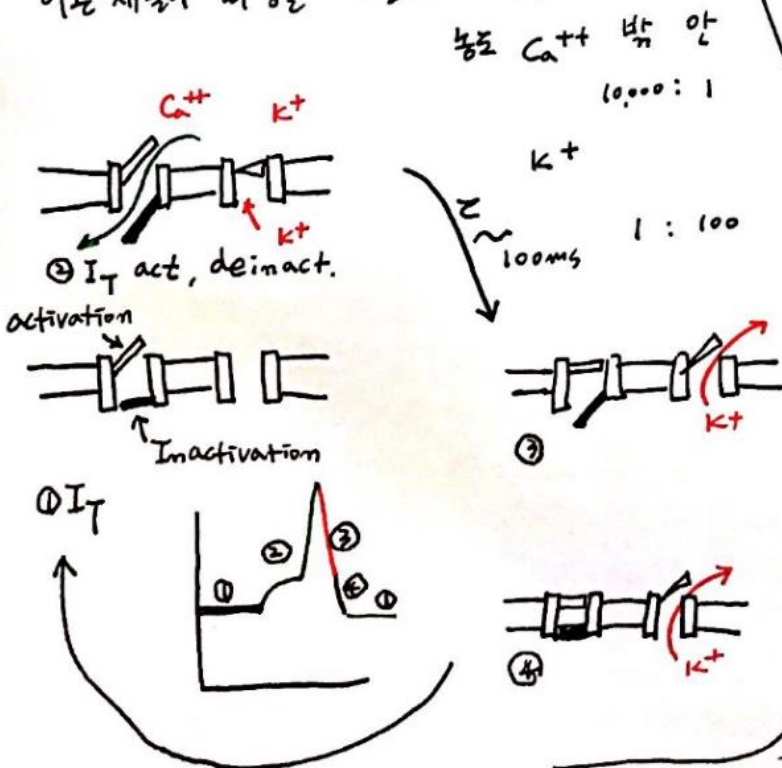 농도 Ca++ 밖 안
10,000 : 1
K+
1 : 100
Ca++ K+
K+
② I_T act, deinact.
τ ~ 100ms
activation
Inactivation
K+
③
① I_T
① ② ③ ④ ①
K+
④